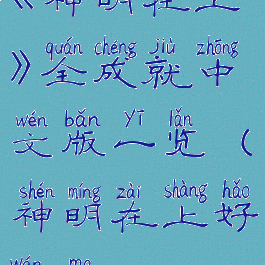 《神明在上
quán chéng jiù zhōng
》全成就中
wén bǎn yī lǎn
文版一览（
shén míng zài shàng hǎo
神明在上好